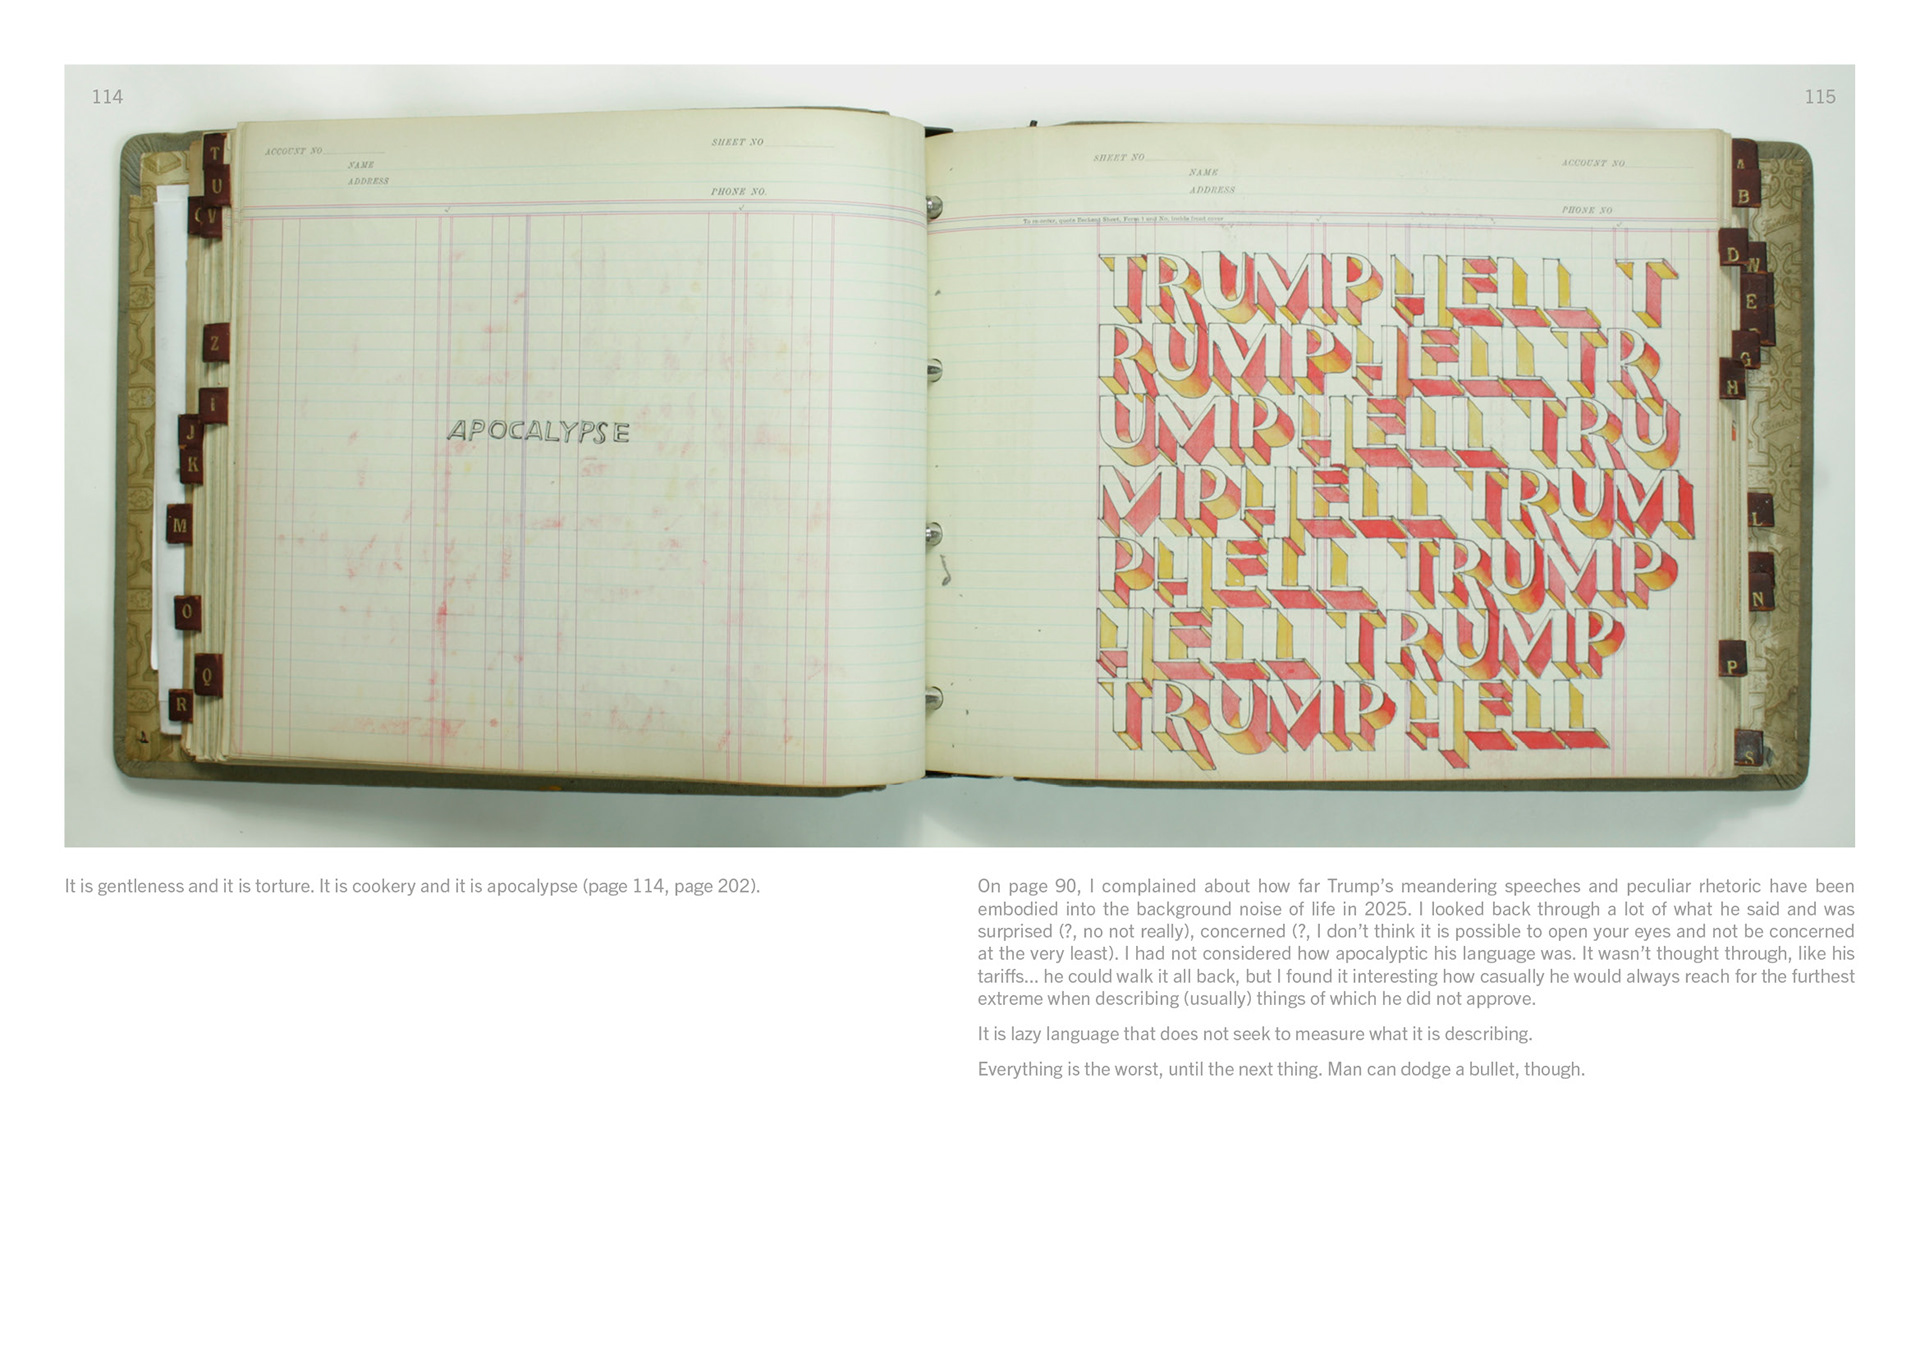 114
115
ACCOUNT NO
SHEET NO
NAME
ADDRESS
PHONE NO.
T
U
V
Z
I
J
K
M
O
Q
R
APOCALYPSE
SHEET NO
ACCOUNT NO
NAME
ADDRESS
PHONE NO
A
B
D
E
G
H
L
N
P
S
TRUMP HELL T
RUMP HELL TR
UMP HELL TRU
MP HELL TRUM
P HELL TRUMP
HELL TRUMP
TRUMP HELL
It is gentleness and it is torture. It is cookery and it is apocalypse (page 114, page 202).
On page 90, I complained about how far Trump’s meandering speeches and peculiar rhetoric have been
embodied into the background noise of life in 2025. I looked back through a lot of what he said and was
surprised (?, no not really), concerned (?, I don’t think it is possible to open your eyes and not be concerned
at the very least). I had not considered how apocalyptic his language was. It wasn’t thought through, like his
tariffs... he could walk it all back, but I found it interesting how casually he would always reach for the furthest
extreme when describing (usually) things of which he did not approve.
It is lazy language that does not seek to measure what it is describing.
Everything is the worst, until the next thing. Man can dodge a bullet, though.